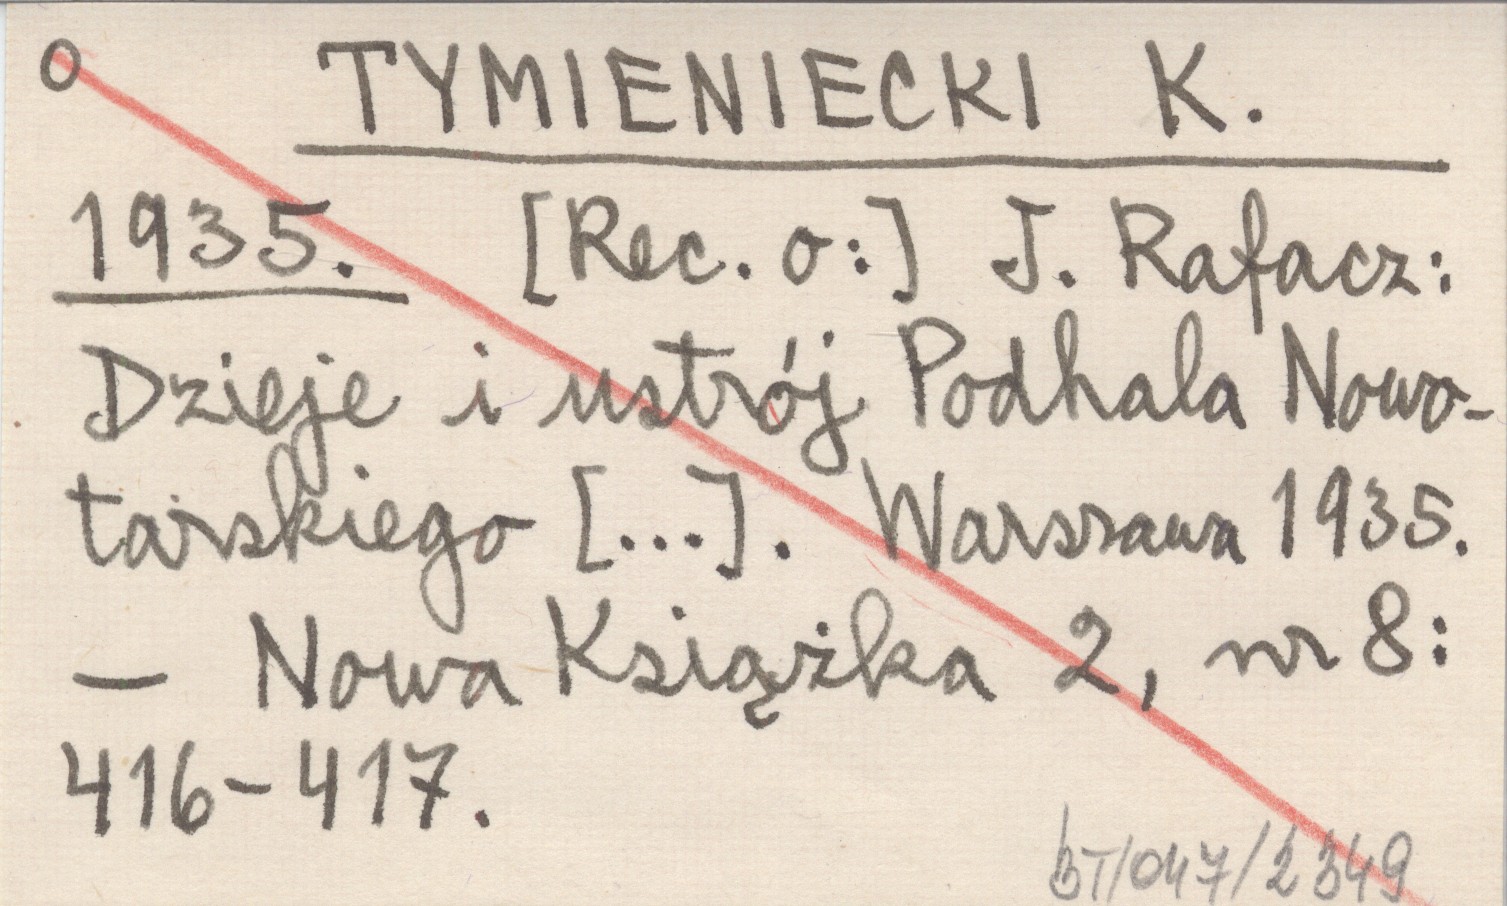 o TYMIENIECKI K.
1935. [Rec. o:] J. Rafacz:
Dzieje i ustrój Podhala Nowo-
tarskiego [...]. Warszawa 1935.
— Nowa Książka 2, nr 8:
416-417.
BT/047/2349